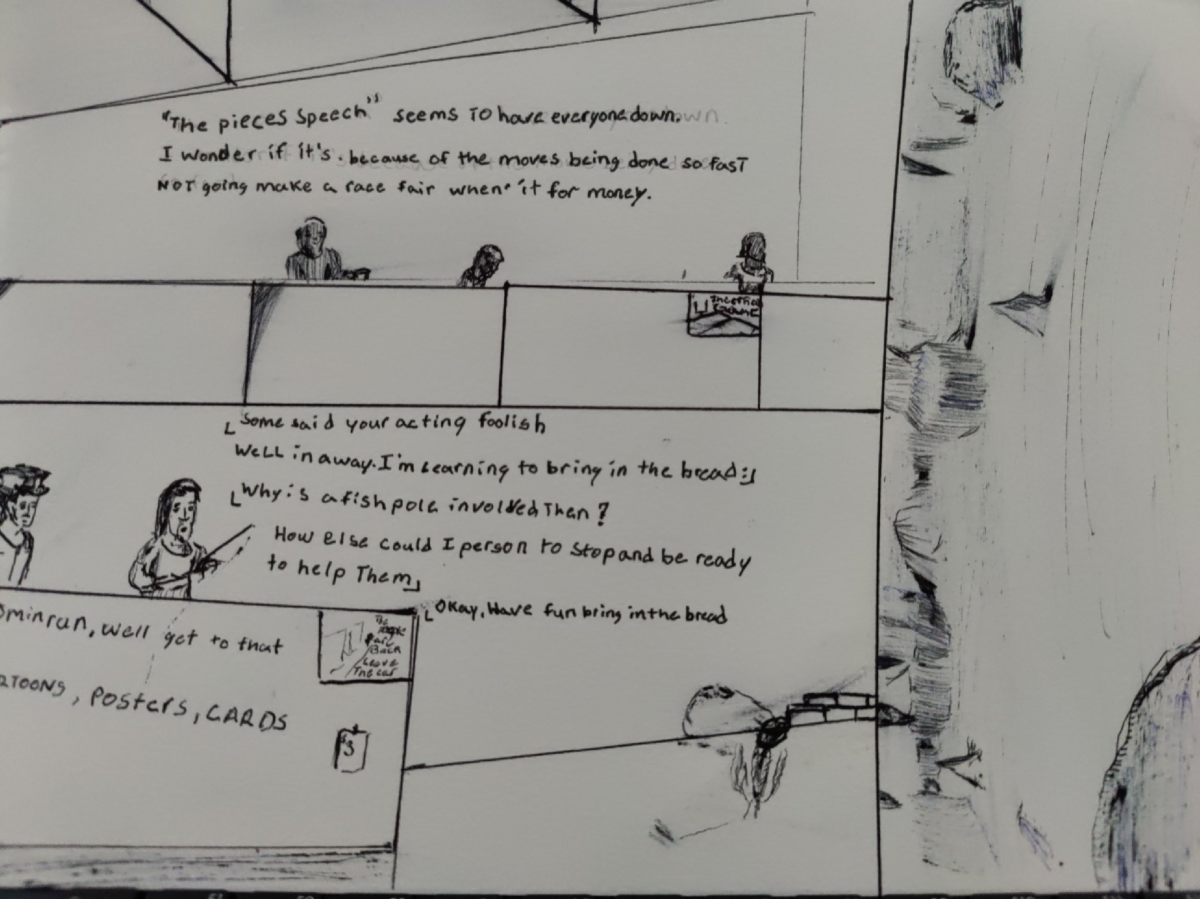 "The pieces Speech" seems To have everyone down.
I wonder if it's. because of the moves being done so fast
NOT going make a race fair when' it for money.
Some said your acting foolish
Well in away. I'm Learning to bring in the bread :j
Why is a fish pole involved Then?
How Else could I person to stop and be ready
to help Them
Okay, Have fun bring in the bread
ominrun, well get to that
The
People
Leave
The car
RTOONS, POSTERS, CARDS
$3